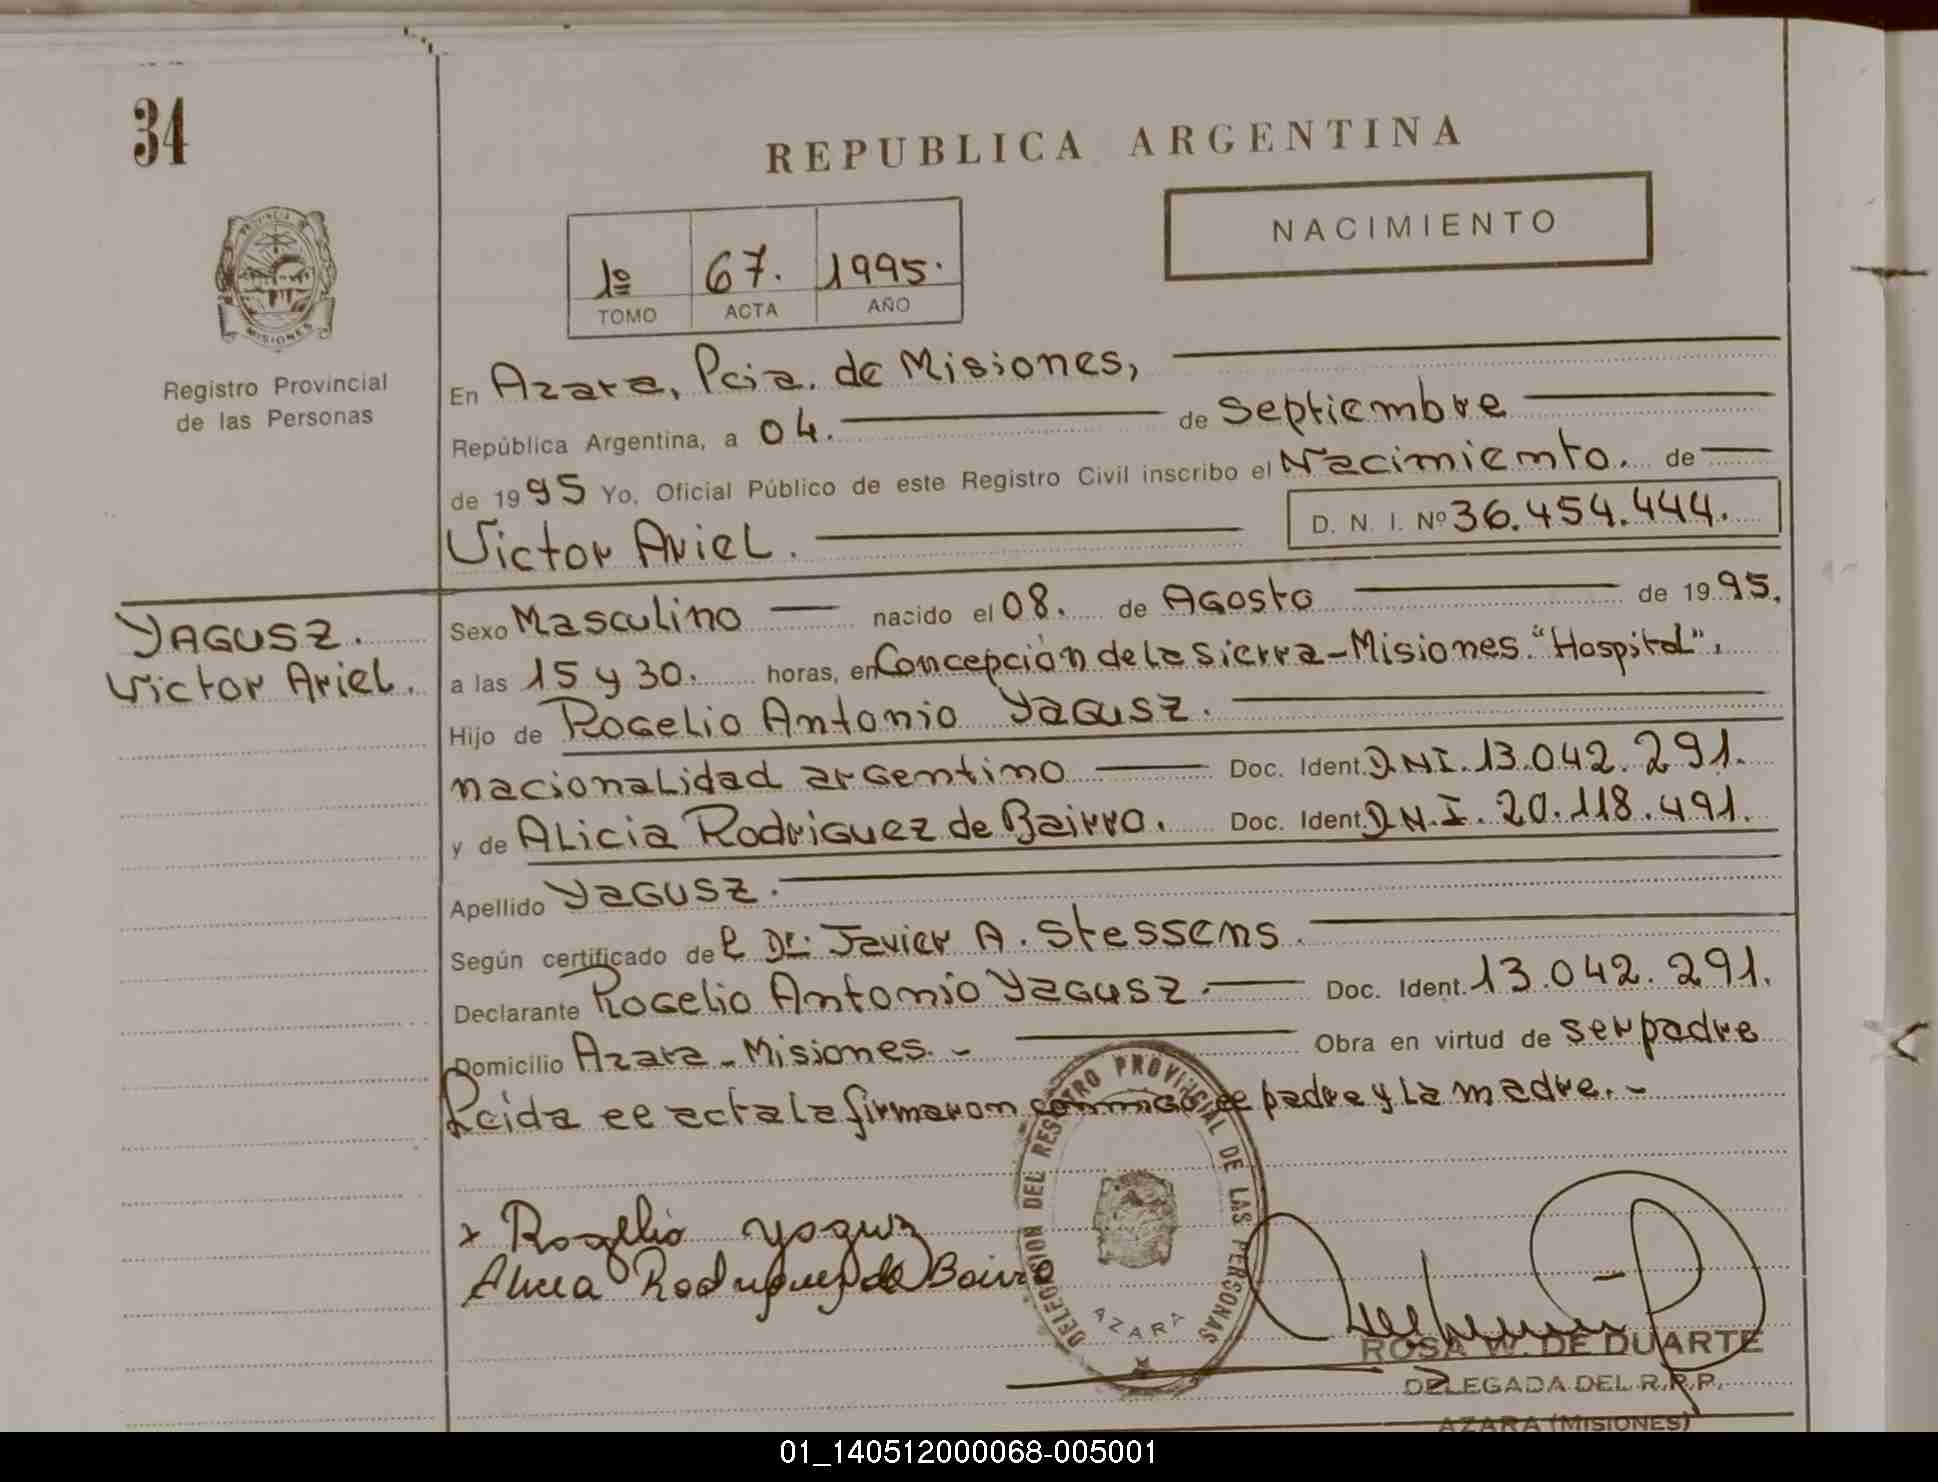 34
REPUBLICA ARGENTINA
NACIMIENTO
1º 67. 1995.
TOMO ACTA AÑO
PROVINCIA DE MISIONES
Registro Provincial
de las Personas
En Azara, Pcia. de Misiones,
República Argentina, a 04. de Septiembre
de 1995 Yo, Oficial Público de este Registro Civil inscribo el Nacimiento. de
Victor Ariel. D. N. I. Nº 36.454.444.
YAGUSZ.
Victor Ariel.
Sexo Masculino nacido el 08. de Agosto de 1995.
a las 15 y 30. horas, en Concepción de la Sierra - Misiones. "Hospital".
Hijo de Rogelio Antonio Yagusz.
nacionalidad argentino Doc. Ident. D.N.I. 13.042.291.
y de Alicia Rodriguez de Bairro. Doc. Ident. D.N.I. 20.118.491.
Apellido Yagusz.
Según certificado del Dr. Javier A. Stessens.
Declarante Rogelio Antonio Yagusz. Doc. Ident. 13.042.291.
Domicilio Azara - Misiones. - Obra en virtud de ser padre
Leida el acta la firmaron conmigo el padre y la madre. -
x Rogelio Yoguz
Alicia Rodriguez de Bairro
DELEGACION DEL REGISTRO PROVINCIAL DE LAS PERSONAS
AZARA
ROSA W. DE DUARTE
DELEGADA DEL R.P.P.
AZARA (MISIONES)
01_140512000068-005001